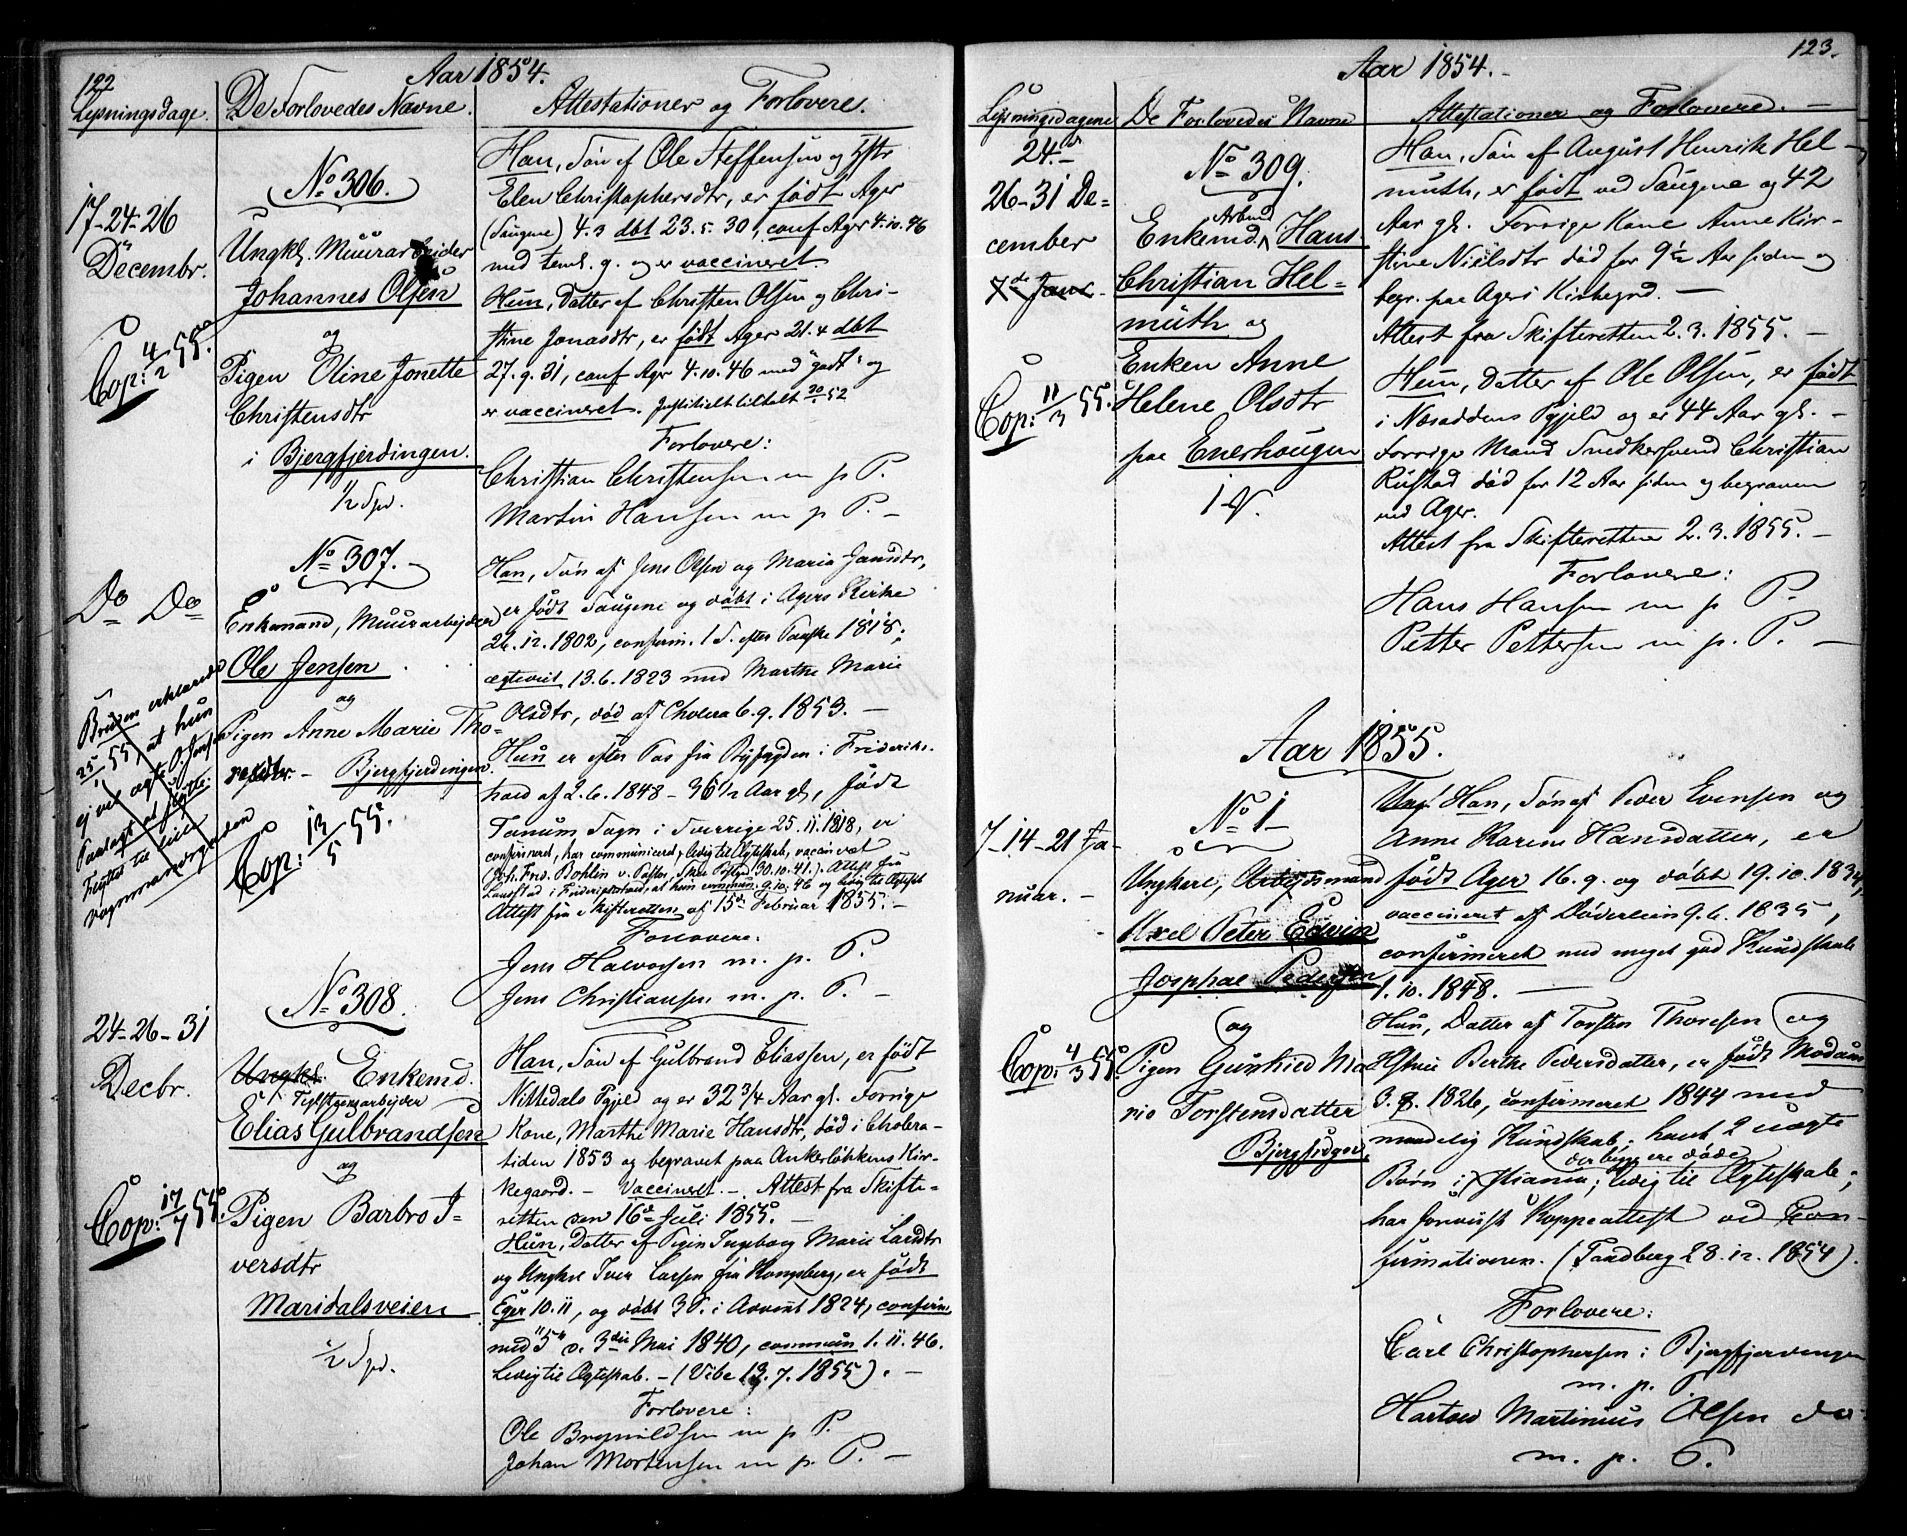 122
Aar 1854.
Lysningsdage. De Forlovedes Navne. Attestationer og Forlovere.
17-24-26
Decembr.
Cop: 4/2 55.
No 306.
Ungkl. Muurarbeider
Johannes Olsen
og
Pigen Oline Jonette
Christensdtr
i Bjergfjerdingen.
1/2 Spd.
Han, Søn af Ole Steffensen og
Elen Christophersdtr, er født Ager
(Saugene) 4.3 dbt 23.5.30, conf Ager 4.10.46
med teml. g. og er vaccineret.
Hun, Datter af Christen Olsen og Chri-
stine Jonasdtr, er født Ager 21.4 dbt
27.9.31, conf Agr 4.10.46 med "godt" og
er vaccineret.
Forlovere:
Christian Christensen m p P.
Martin Hansen m p P. –
Do Do
Bruden erklærede
25/1 55, at hun
ej vil ægte O. Jensen
No 307. –
Enkemand, Muurarbejder
Ole Jensen
og
Pigen Anne Marie Tho-
resdtr. – Bjergfjerdingen.
Cop: 13/5 55.
Han, Søn af Jens Olsen og Maria Jansdtr,
er født Saugene og døbt i Agers Kirke
26.12.1802, confirm. 1 S. efter Paaske 1818;
ægteviet 13.6.1823 med Marthe Marie
Olsdtr, død af Cholera 6.9.1853. –
Hun er efter Pas fra Byfogden i Frideriks-
hald af 2.6.1848 – 36 1/2 Aar gl, født
Tanum Sogn i Sverrige 25.11.1818, er
confirmeret, har communicerd, ledig til Ægteskab, vaccineret
(Joh. Fred. Bohlin v. Pastor, 30.10.41). Attest fra
Landstad i Fridrikshald, at hun commun. 9.10.46 og ledig til Ægteskab
Attest fra Skifteretten af 15de Februar 1855. –
Forlovere:
Jens Halvorsen m. p. P.
Jens Christiansen m. p. P. –
24-26-31
Decbr.
Cop: 17/7 55.
No 308.
Ungkl. Enkemd.
Teglstensarbejder
Elias Gulbrandsen
og
Pigen Barbro I-
versdtr
Maridalsveien
1/2 Spd.
Han, Søn af Gulbrand Eliassen, er født
Nittedals Pgjeld og er 32 3/4 Aar gl. Forrige
Kone, Marthe Marie Hansdtr, død i Cholera-
tiden 1853 og begravet paa Ankerløkkens Kir-
kegaard. – Vaccineret. – Attest fra Skifte-
retten den 16de Juli 1855. –
Hun, Datter af Pigen Ingeborg Marie Larsdtr
og Ungkrl Iver Larsen fra Kongsberg, er født
Eger 10.11, og døbt 3 S. i Advent 1824, confirm
med "5" d. 3die Mai 1840, commun 1.11.46.
Ledig til Ægteskab. – (Vibe 13.7.1855). –
Forlovere:
Ole Brynildsen m p P.
Johan Mortensen m p. P. –
123.
Aar 1854. –
Lysningsdagene De Forlovedes Navne Attestationer og Forlovere. –
24. –
26-31 De-
cember
7de Janr. –
Cop: 11/3 55.
No 309.
Arbmd
Enkemd. Hans
Christian Hel-
muth og
Enken Anne
Helene Olsdtr
paa Enerhougen
Han, Søn af August Henrik Hel-
muth, er født ved Saugene og 42
Aar gl. Forrige Kone Anne Kir-
stine Nielsdtr død for 9 1/2 Aar siden og
begr. paa Agers Kirkegrd. –
Attest fra Skifteretten 2.3.1855. –
Hun, Datter af Ole Olsen, er født
i Næsoddens Pgjeld og er 44 Aar gl. –
Forrige Mand Snedkersvend Christian
Rustad død for 12 Aar siden og begraven
ved Ager.
Attest fra Skifteretten 2.3.1855. –
Forlovere:
Hans Hansen m p P.
Petter Pettersen m p. P. –
Aar 1855.
7-14-21 Ja-
nuar. –
Cop: 4/3 55.
No 1 –
Ungkarl, Arbejdsmand
Axel Peter Edvin
Josphae Pedersen
og
Pigen Gunhild Ma-
rie Torstensdatter
Bjergfjdgen.
Han, Søn af Peder Evensen og
Anne Karine Hansdatter, er
født Ager 16.9. og døbt 19.10.1834,
vaccineret af Döderlein 9.6.1835,
confirmeret med meget god Kundskab
1.10.1848. –
Hun, Datter af Torsten Thoresen og
Hustrue Berthe Pedersdatter, er født Modum
3.8.1826, confirmeret 1844 med
maadelig Kundskab; havt 2 uægte
der begge ere døde
Børn i Xstiania; ledig til Ægteskab;
har foreviist Koppeattest ved Con-
firmationen. (Tandberg 28.12.1854).
Forlovere:
Carl Christophersen i Bjergfjerdingen
m. p. P.
Martinius Olsen do
m. p. P.